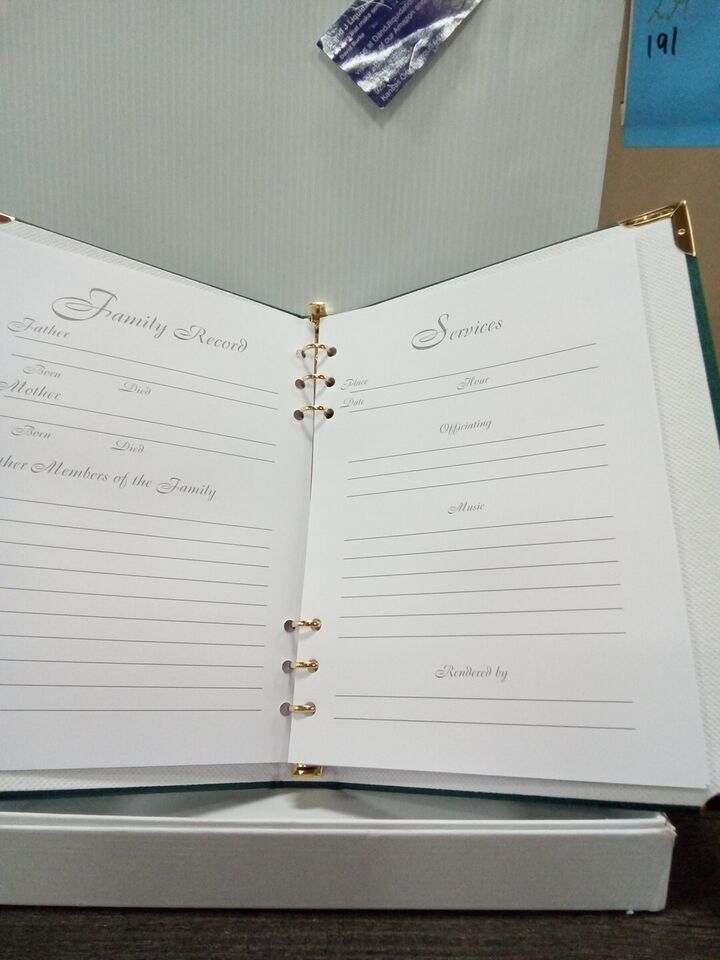 J Liquid
191
Family Record
Father
Born Died
Mother
Born Died
ther Members of the Family
Services
Place Hour
Date
Officiating
Music
Rendered by